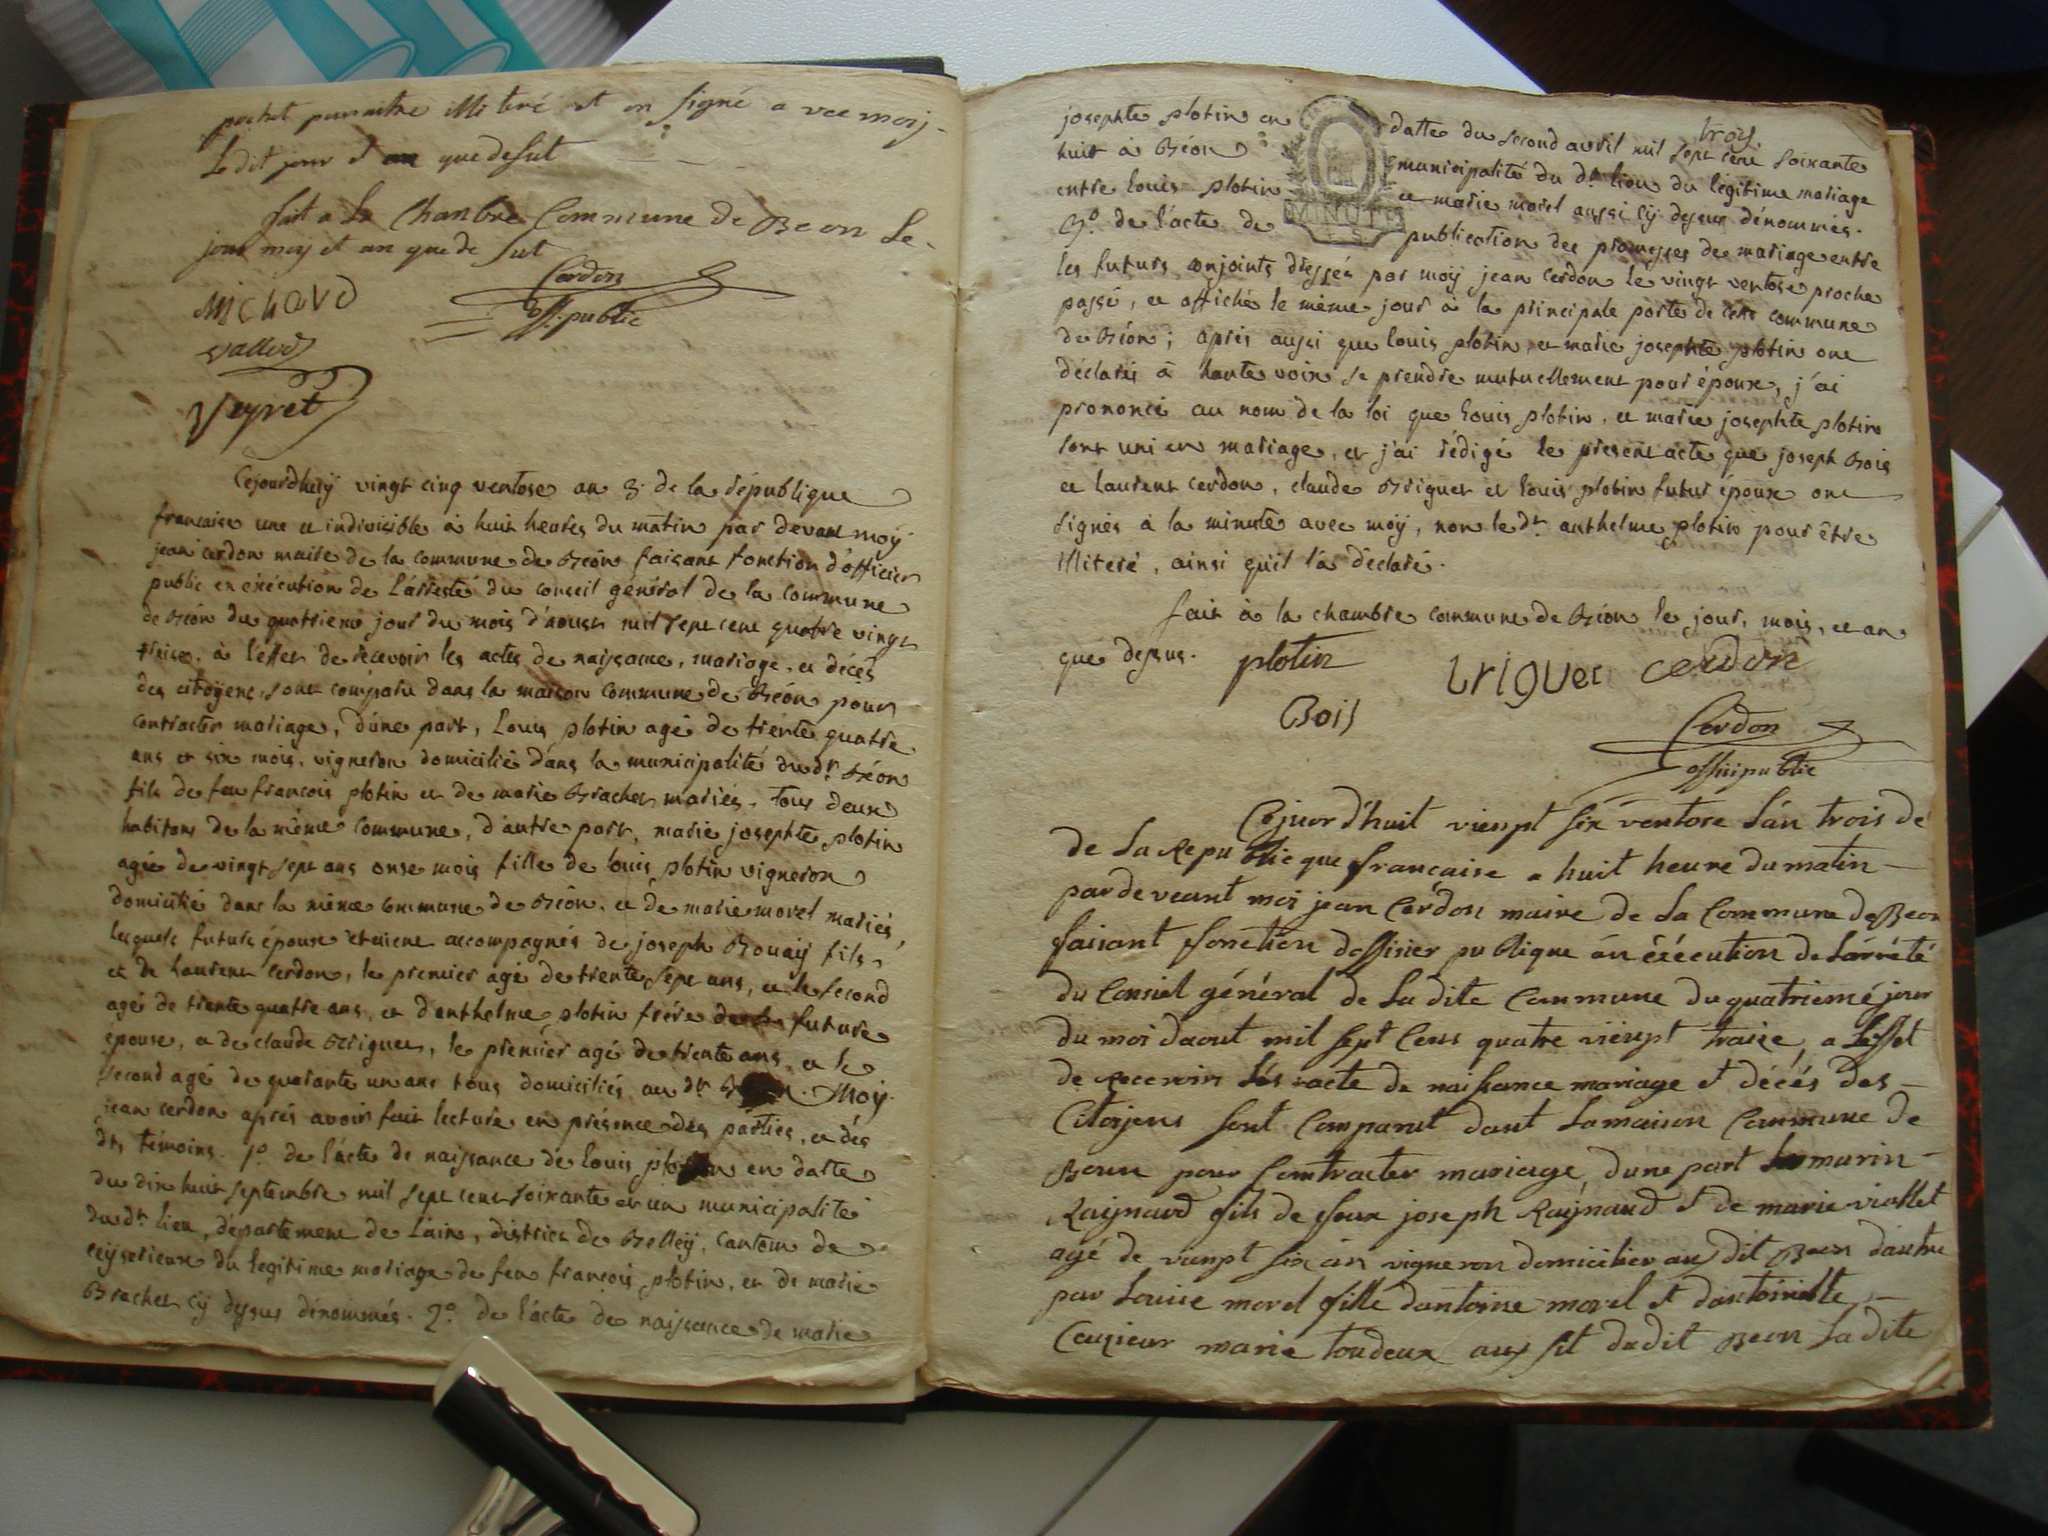 pochet pur nestre illiteré et on signé a vec moij
Le dit jour et an que de sut
fait a La Chanbre Commune de Beon Le
jour moy et an que de sut
Michavd
Cerdon
off. public
Vallod
Veyret
Cejourdhuij vingt cinq ventose an 3.e de la république
francaise une et indivisible à huit heures du matin par devant moij
jean cerdon maire de la commune de Béon faisant fonction d'officier
public en éxécution de l'arresté du conseil général de la commune
de Béon du quatrieme jour du mois d'aoust mil sept cent quatre vingt
treise, à l'effet de recevoir les actes de naissance, mariage, et décés
des citoyens, sont comparu dans la maison commune de Béon pour
contracter mariage, d'une part, Louis plotin agé de trente quatre
ans et six mois, vigneron domicilié dans la municipalité du dt. Béon
fils de feu francois plotin et de marie Brachet mariés. tous deux
habitans de la même commune, d'autre part, marie josephte plotin
agée de vingt sept ans onse mois fille de louis plotin vigneron
domicilié dans la même commune de Béon, et de marie morel mariés,
lesquels futurs époux etoient accompagnés de joseph Bouaij fils,
et de laurent cerdon, le premier agé de trente sept ans, et le second
agé de trente quatre ans, et d'anthelme plotin frére de la future
épouse, et de claude Briguet, le premier agé de trente ans, et le
second agé de quarante un ans tous domiciliés au dt. Moij
jean cerdon aprés avoir fait lecture en présence des parties, et dés
dts. témoins. 1o. de l'acte de naissance de louis plotin en datte
du dix huit septembre mil sept cent soixante et un municipalité
du dt. lieu, département de l'ain, district de Belleij, canton de
ceijserieux du legitime mariage de feu françois plotin, et de marie
Brachet cij dessus dénommés. 2o. de l'acte de naissance de marie
josephte plotin en datte du second avril mil sept cent soixante trois
huit à Béon municipalité du dt. lieu du légitime mariage
entre louis plotin et marie morel aussi cij dessus dénommés.
3o. de l'acte de publication des promesses de mariage entre
MINUTE
les futurs conjoints dressée par moij jean cerdon le vingt ventose proche
passé, et affiché le même jour à la principale porte de cette commune
de Béon; aprés aussi que louis plotin, et marie josephte plotin ont
déclarés à haute voix se prendre mutuellement pour époux, j'ai
prononcé au nom de la loi que louis plotin, et marie josephte plotin
sont uni en mariage, et j'ai rédigé le present acte que joseph Bois
et laurent cerdon, claude Briguet et louis plotin futur époux ont
signés à la minute avec moij, non le dt. anthelme plotin pour être
illiteré, ainsi qu'il l'a déclaré.
fait à la chambre commune de Béon le jour, mois, et an
que dessus. plotin briguet cerdon
Bois
Cerdon
offisipublic
Cejuordhuit vienpt six ventose L'an trois de
de La Republicque francaise a huit heure du matin
par de veant moi jean Cerdon maire de La Commune de Beon
faisant fonction doffisier publique an éxécution de Larrété
du Consiel général de La dite Commune du quatriemé jour
du moi daout mil sept Cens quatre vienpt traize, a Leffet
de Recevoir Lés acte de naissance mariage et décés des
Citoijens sont Comparut dant La maison Commune de
Beon pour Contracter mariage, dune part murin
Raijnaud fils de feux joseph Raijnaud et de marie viollet
agé de vienpt six an vigneron domicilier au dit Beon dautre
par Louise morel fille dantoine morel et dantoinette
Cauzieur marie toudeux aussit dudit Beon La dite